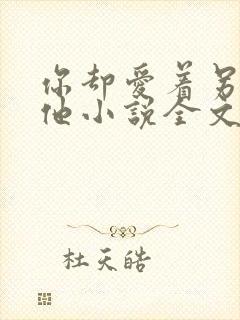 你却爱着另
他小说全文
杜天皓